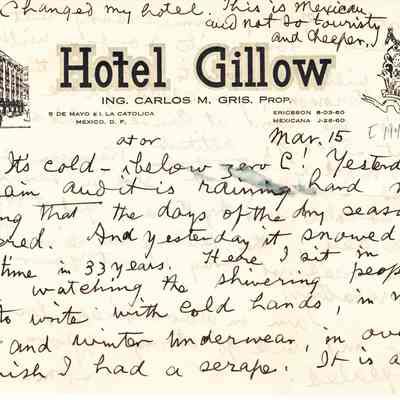 Changed my hotel. This is Mexican
and not so touristy
and cheaper,
Hotel Gillow
ING. CARLOS M. GRIS. PROP.
5 DE MAYO E I. LA CATOLICA
MEXICO, D. F.
ERICSSON 8-03-60
MEXICANA J-26-60
at or Mar. 15
It's cold - below zero C! Yesterd
ain and it is raining hard n
ng that the days of the dry seas
ered. And yesterday it snowed
time in 33 years. Here I sit in
watching the shivering peop
to write with cold hands, in m
and winter underwear, in ov
ish I had a serape. It is a